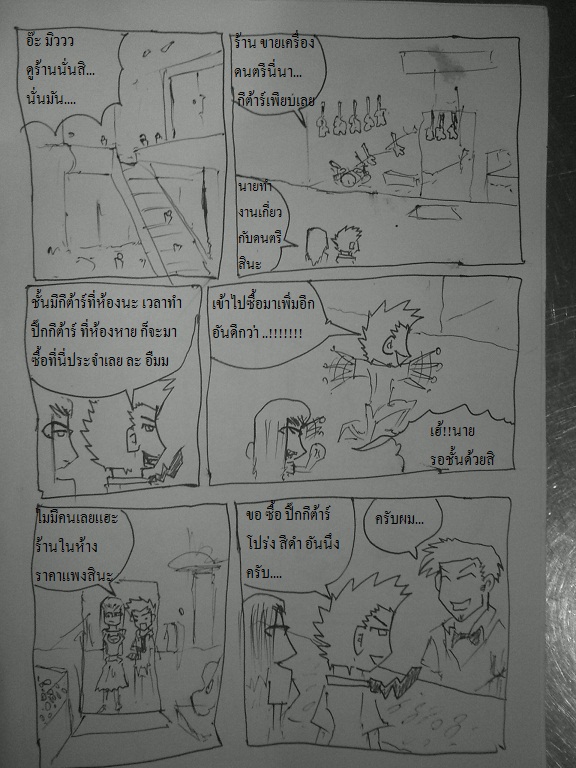 อ๊ะ มิววว
ดูร้านนั่นสิ...
นั่นมัน....
ร้าน ขายเครื่อง
ดนตรีนี่นา...
กีต้าร์เพียบเลย
นายทำ
งานเกี่ยว
กับดนตรี
สินะ
ชั้นมีกีต้าร์ที่ห้องนะ เวลาทำ
ปิ๊กกีต้าร์ ที่ห้องหาย ก็จะมา
ซื้อที่นี่ประจำเลย ละ อืมม
เข้าไปซื้อมาเพิ่มอีก
อันดีกว่า ..!!!!!!!
เฮ้!!นาย
รอชั้นด้วยสิ
ไม่มีคนเลยแฮะ
ร้านในห้าง
ราคาแพงสินะ
ขอ ซื้อ ปิ๊กกีต้าร์
โปร่ง สีดำ อันนึง
ครับ....
ครับผม...